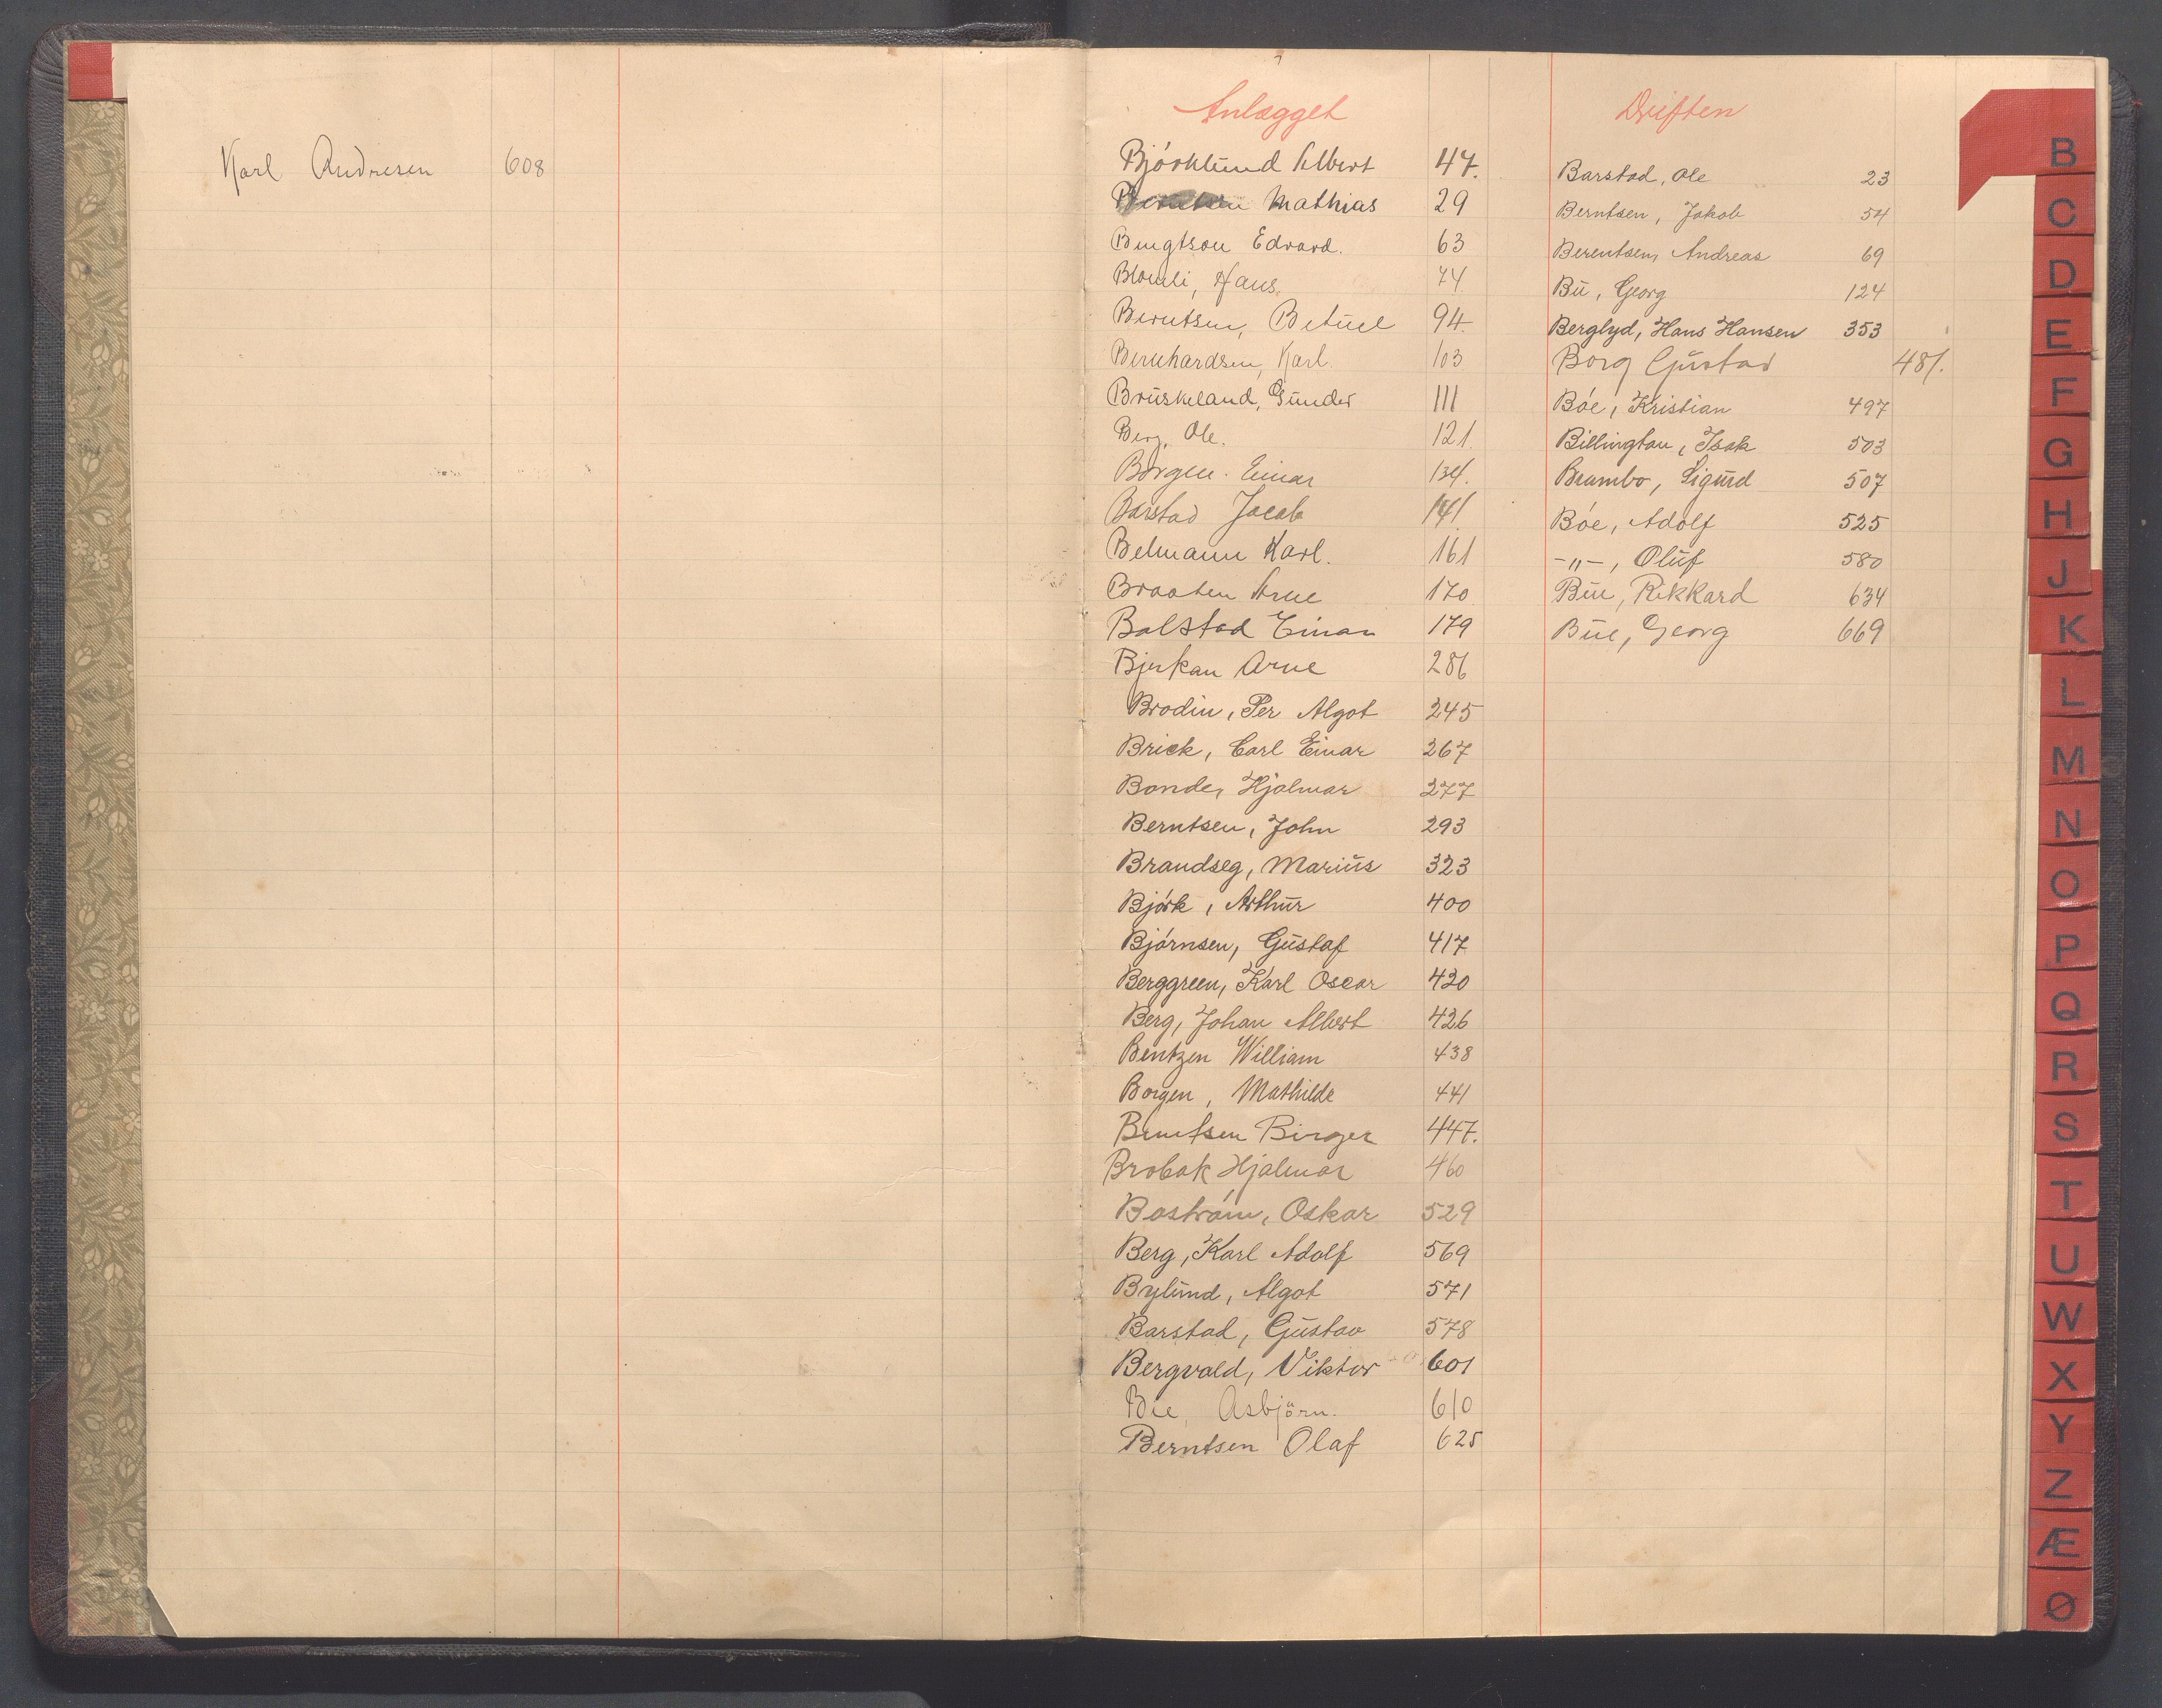 Karl Andresen 608
Anlægget
Björklund Albert 47.
Mathias 29
Bengtson Edvard. 63
Hans. 74
Berntsen, Betuel 94.
Bernhardsen, Karl. 103
Bruskeland, Gunder 111
Berg, Ole. 121.
Borgen. Einar 134.
Barstad Jacob 141
Belmann Karl. 161
Braaten Arne 170
Balstad Einar 179
Bjerkan Arne 286
Brodin, Per Algot 245
Brick, Carl Einar 267
Bonde, Hjalmar 277
Berntsen, John 293
Brandseg, Marius 323
Björk, Arthur 400
Björnsen, Gustaf 417
Berggreen, Karl Oscar 420
Berg, Johan Albert 426
Bentzen William 438
Borgen, Mathilde 441
Berntsen Birger 447.
Brobak Hjalmar 460
Boström, Oskar 529
Berg, Karl Adolf 569
Bylund, Algot 571
Barstad, Gustav 578
Bergvald, Viktor 601
Bie, Asbjörn. 610
Berntsen Olaf 625
Driften
Barstad, Ole 23
Berntsen, Jakob 54
Berentsen, Andreas 69
Bü, Georg 124
Berglyd, Hans Hansen 353
Borg Gustav 481.
Bóe, Kristian 497
Billington, Isak 503
Brambo, Sigurd 507
Bóe, Adolf 525
-"-, Oluf 580
Büe, Rikkard 634
Büe, Georg 669
B
C
D
E
F
G
H
J
K
L
M
N
O
P
Q
R
S
T
U
W
X
Y
Z
Æ
Ø